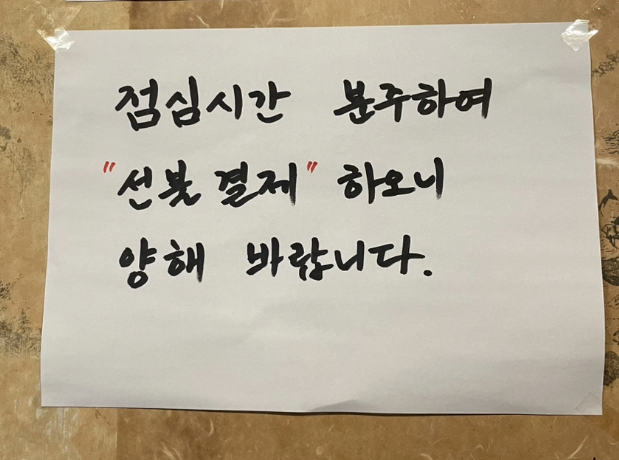 점심시간 분주하여
"선불 결제" 하오니
양해 바랍니다.